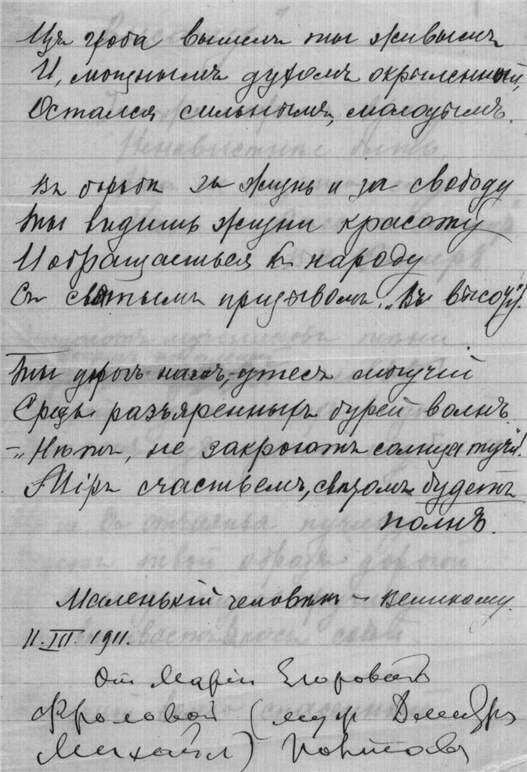 Изъ гроба вышелъ ты живымъ
И, мощнымъ духомъ окрыленный,
Остался сильнымъ, молодымъ.
Въ борьбѣ за жизнь и за свободу
Ты видишь жизни красоту
И обращаешься къ народу
Съ святымъ призывомъ: „Въ высоту!“
Ты дорогъ намъ, утесъ могучій
Средь разъяренныхъ бурей волнъ
– „Нѣтъ, не закроютъ солнца тучи!
Міръ счастьемъ, свѣтомъ будетъ
полнъ.
Маленькій человѣкъ – великому.
11.III.1911.
От Маріи Егоровой
Фроловой (муж
Михайл)